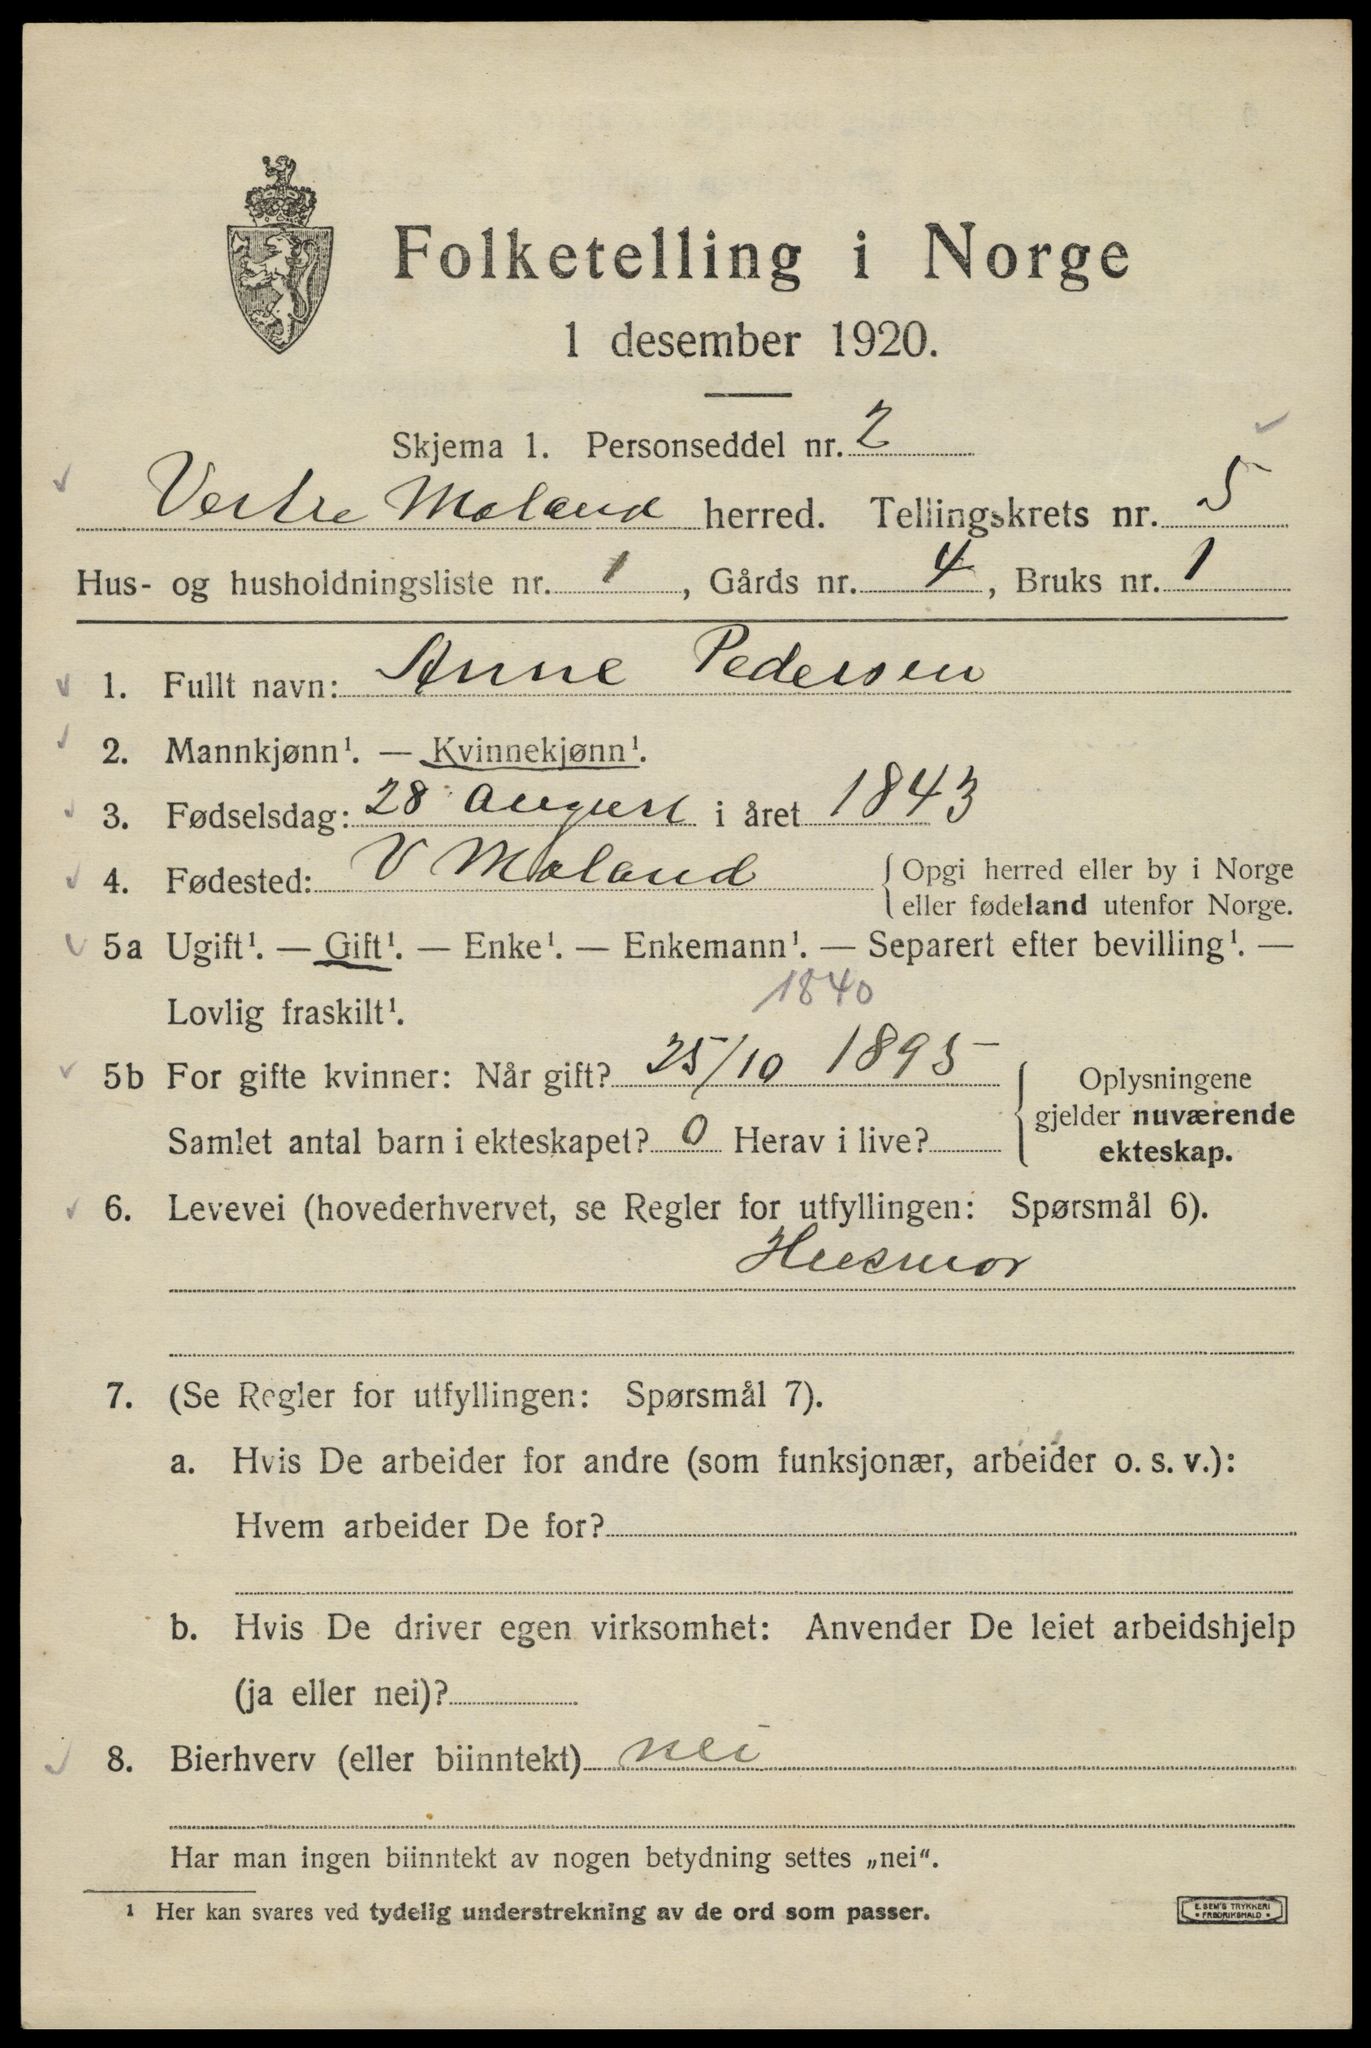 Folketelling i Norge
1 desember 1920.
Skjema 1. Personseddel nr. 2
Vestre Moland herred. Tellingskrets nr. 5
Hus- og husholdningsliste nr. 1, Gårds nr. 4, Bruks nr. 1
1. Fullt navn: Anne Pedersen
2. Mannkjønn¹. — Kvinnekjønn¹.
3. Fødselsdag: 28 August i året 1843
4. Fødested: V Moland {Opgi herred eller by i Norge
eller fødeland utenfor Norge.
5a Ugift¹. — Gift¹. — Enke¹. — Enkemann¹. — Separert efter bevilling¹. —
Lovlig fraskilt¹. 1840
5b For gifte kvinner: Når gift? 25/10 1895 { Oplysningene
gjelder nuværende
Samlet antal barn i ekteskapet? 0 Herav i live? ekteskap.
6. Levevei (hovederhvervet, se Regler for utfyllingen: Spørsmål 6).
Husmor
7. (Se Regler for utfyllingen: Spørsmål 7).
a. Hvis De arbeider for andre (som funksjonær, arbeider o. s. v.):
Hvem arbeider De for?
b. Hvis De driver egen virksomhet: Anvender De leiet arbeidshjelp
(ja eller nei)?
8. Bierhverv (eller biinntekt) nei
Har man ingen biinntekt av nogen betydning settes „nei“.
¹ Her kan svares ved tydelig understrekning av de ord som passer.
E. SEM'S TRYKKERI
• FREDRIKSHALD •